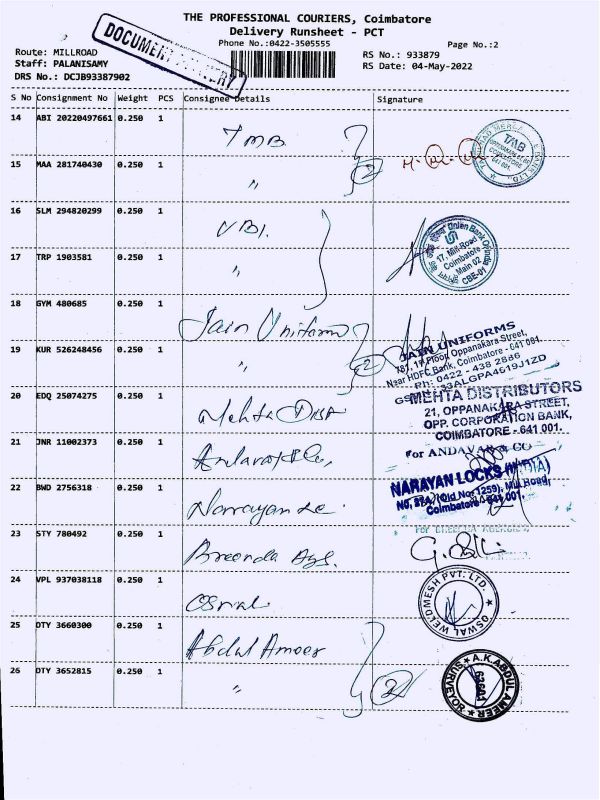 THE PROFESSIONAL COURIERS, Coimbatore
Delivery Runsheet - PCT
Phone No.:0422-3505555
Page No.:2
Route: MILLROAD
RS No.: 933879
Staff: PALANISAMY
RS Date: 04-May-2022
DRS No.: DCJB93387902
DOCUMENT DELIVERY
S No Consignment No Weight PCS Consignee Details Signature
14 ABI 20220497661 0.250 1 TMB
TMB
COIMBATORE
641 001.
15 MAA 281740430 0.250 1 " 2
16 SLM 294820299 0.250 1 UBI.
Union Bank Of India
17, Mill Road
Coimbatore
Main 02
CBE-01
17 TRP 1903581 0.250 1 "
18 GYM 480685 0.250 1 Jain Uniform
JAIN UNIFORMS
787, 1st Floor, Oppanakara Street,
Near HDFC Bank, Coimbatore - 641 001.
Ph: 0422 - 438 2886
19 KUR 526248456 0.250 1 " 2
20 EDQ 25074275 0.250 1 Mehta Dist
MEHTA DISTRIBUTORS
21, OPPANAKARA STREET,
OPP. CORPORATION BANK,
COIMBATORE - 641 001.
21 JNR 11002373 0.250 1
For ANDAVAR & CO
22 BWD 2756318 0.250 1 Narayan Lo
NARAYAN LOCKS (INDIA)
(Old No: 1259), Mill Road,
Coimbatore - 641 001.
23 STY 780492 0.250 1 Breenda Ags.
24 VPL 937038118 0.250 1 Oswal
OSWAL WELDMESH PVT. LTD.
25 DTY 3660300 0.250 1 Abdul Ameer
26 DTY 3652815 0.250 1 " 2
A.K.ABDUL AMEER
SURVEYOR